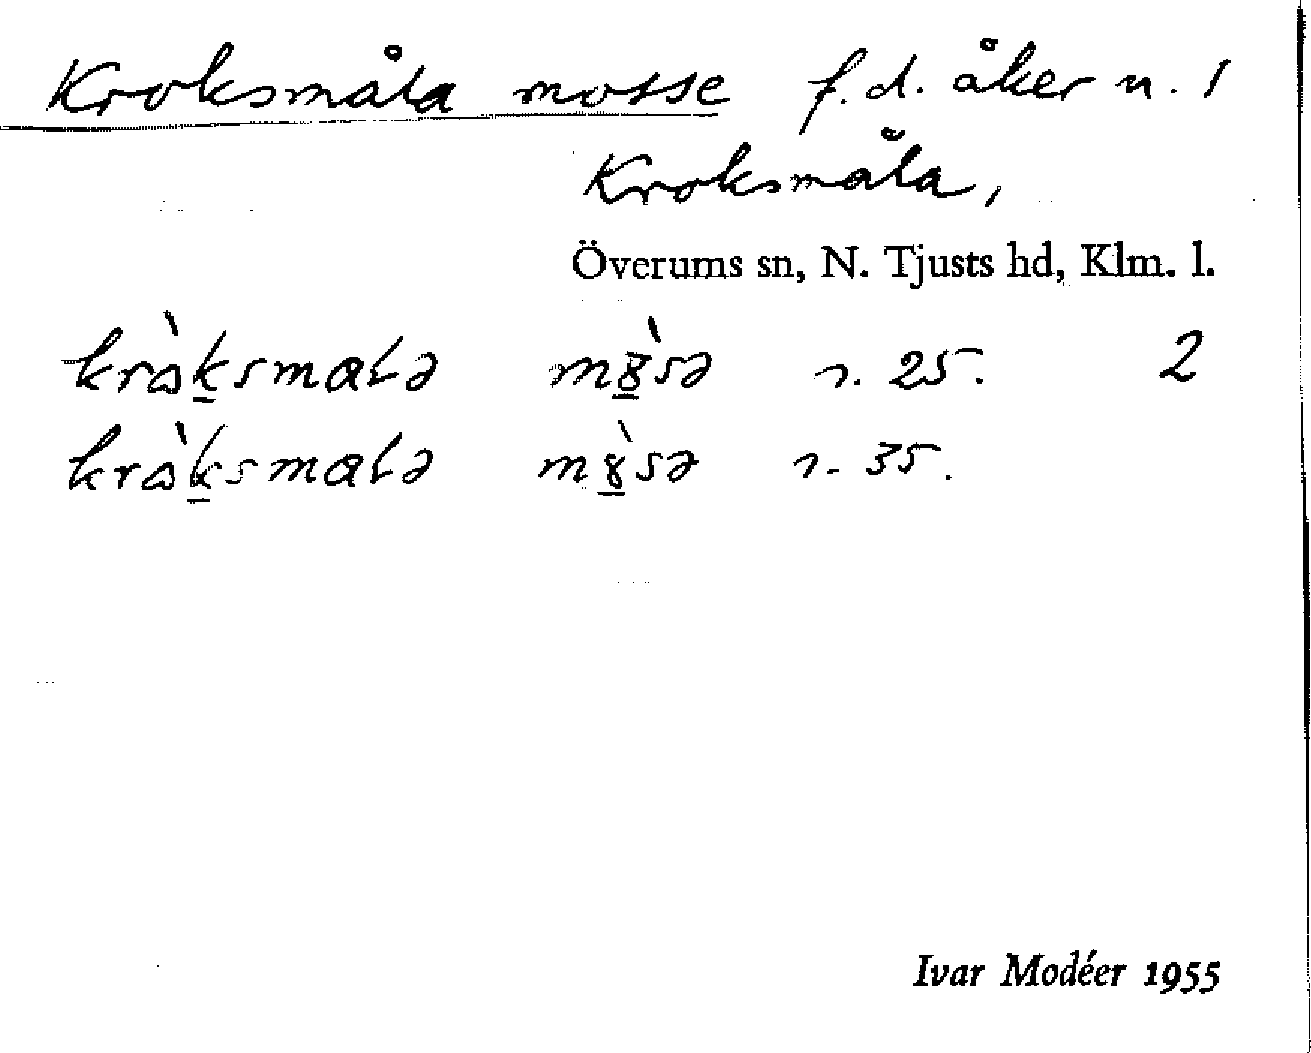 Kroksmåla mosse f.d. åker n. 1
Kroksmåla,
Överums sn, N. Tjusts hd, Klm. l.
krὰk̲smaLə m8̲̀sə r. 25. 2
krὰk̲smaLə m8̲̀sə r. 35.
Ivar Modéer 1955